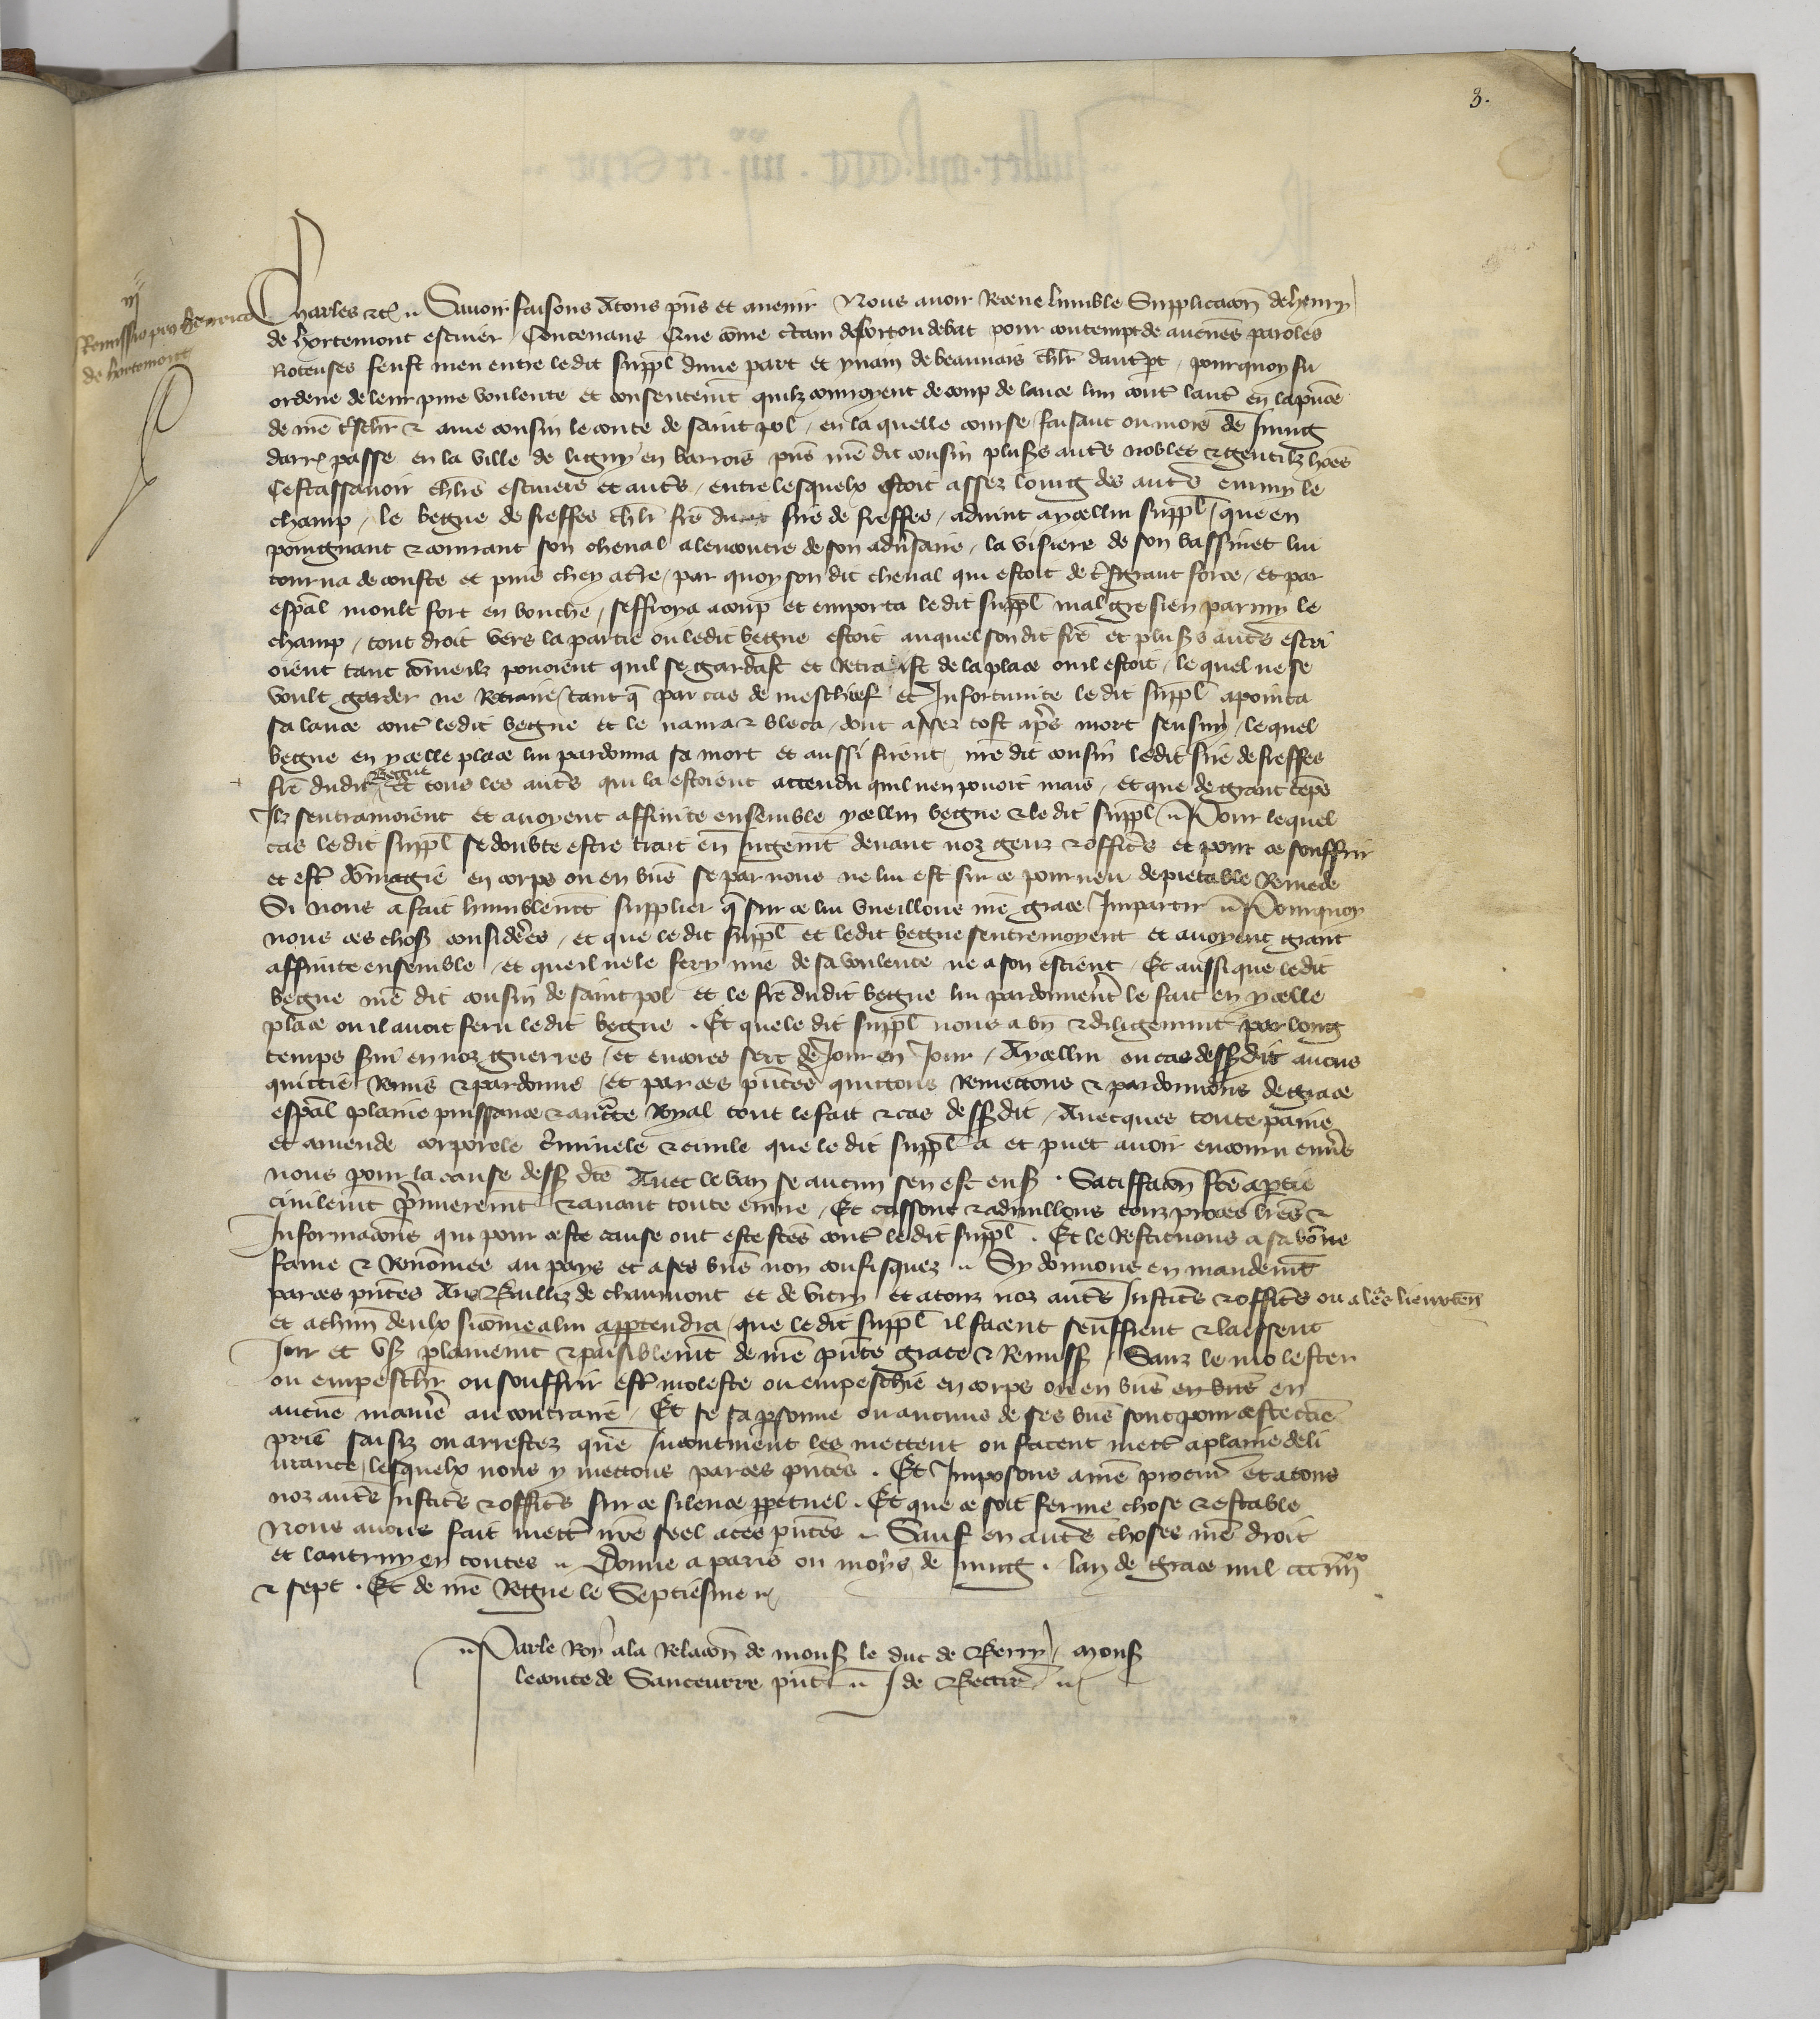 3.
iij
Remissio pro henrico
de hortemont
Charles etc. Savoir faisons A tous pñs et avenir Nous avoir Receue lumble Supplicacõn de henry
de hortemont escuier Contenans Que cõme c̃tain desbort ou debat pour contempt de aucunes paroles
Roteuses feust meu entre le dit suppl̃ dune part et ynain de beauvais chlr̃ dautr̃ pt pour quoy fu
ordene de leur pme voulente et consentem̃t quilz courroyent de coup de lance lun contr̃ lautr̃ en la pñce
de nr̃e t̃schr̃ & ame cousin le conte de saint pol en la quelle course faisant ou mois de Juing
darr̃ passe en la ville de ligny en barrois pñs nr̃e dit cousin plus̃s autr̃s nobles & gentilz hões
Cestassavoir chlr̃s escuiers et autr̃s entre lesquelx estoit assez loing des autr̃s emmy le
champ le begue de fieffes chlr̃ fr̃e du sire de fieffes advint a ycellui suppl̃ que en
poingnant & courant son cheval a lencontre de son adṽsaire la visiere de son bassinet lui
tourna de coste et puis chey a tr̃e par quoy son dit cheval qui estoit de t̃sgrant force et par
esp̃al moult fort en bouche seffroya a coup et emporta le dit suppl̃ mal gre sien parmy le
champ tout droit vers la partie ou ledit begue estoit auquel son dit fr̃e et plus̃s autr̃s escri
oient tant cõme ilz povoient quil se gardast et Retraisist de la place ou il estoit le quel ne se
voult garder ne Retraire tant q̃ par cas de meschief et Infortunite le dit suppl̃ apointa
sa lance contr̃ ledit begue et le navra & bleca dont assez tost apr̃s mort sensuy le quel
begue en ycelle place lui pardonna sa mort et aussi firent nr̃e dit cousin ledit sire de fieffes
fr̃e dudit Begue et tous les autr̃s qui la estoient attendu quil nen povoit mais Et que de grant tẽps
Ilz sentramoient et avoyent affinite ensemble ycellui begue & le dit suppl̃ Pour lequel
cas ledit suppl̃ se doubte estre trait en Jugem̃t devant noz genz & officr̃s et pour ce souffrir
et estr̃ dõmagie en corps ou en biẽs se par nous ne lui est sur ce pourveu de pietable Remede
Si nous a fait humblem̃t supplier q̃ sur ce lui vueillons nr̃e grace Impartir Pour quoy
nous ces chos̃ considẽrees et que le dit suppl̃ et ledit begue sentremoyent et avoyent grant
affinite ensemble et que il ne le fery mie de sa voulente ne a son escient Et aussi que le dit
begue nr̃e dit cousin de saint pol et le fr̃e du dit begue lui pardonner̃t le fait en ycelle
place ou il avoit feru ledit begue . Et que le dit suppl̃ nous a bñ & diligemm̃t par long
temps s̃vi en noz guerres et encores sert de Jour en Jour A ycellui ou cas dess̃ dit avons
quittie Remis & pardonne Et par ces pñtes quittons Remettons & pardonnons de grace
esp̃al plaine puissance & auctr̃te Royal tout le fait & cas dess̃ dit Avecques toute paine
et amende corporele c̃riminele & civile que le dit suppl̃ a et puet avoir encouru env̾s
nous pour la cause dess̃ dc̃e Avec le ban se aucun sen est ens̃ . Satisffacõn fc̃e a ptie
civilem̃t p̃mierem̃t & avant toute euvre Et cassons & adnullons touz proces br̃es &
Informacõns qui pour ceste cause ont este fc̃es contr̃ le dit suppl̃ . Et le Restituons a sa bõne
fame & Renõmee au pays et a ses biẽs non confisquez Sy donnons en mandem̃t
par ces pñtes Aus Bailliz de chaumont et de Vitry et a touz noz autr̃s Justicr̃s & officr̃s ou a leurs lieuxten̄
et a chũn deulx si cõme a lui appartendra que le dit suppl̃ il facent seuffrent & laissent
Joir et us̃ plainem̃t & paisiblem̃t de nr̃e pñte grace & Remiss̃ Sanz le molester
ou empeschr̃ ou souffrir estr̃ moleste ou empeschie en corps ou en biẽs en biẽs en
aucũe maniẽre au contraire Et se sa p̃sonne ou aucuns de ses biẽs sont pour ceste cãe
pris saisiz ou arrestez que Incontinent les mettent ou facent mettr̃ a plaine deli
vrance lesquelx nous y mettons par ces pñtes . Et Imposons a nr̃e procur̃ et a tous
noz autr̃s Justicr̃s & officr̃s sur ce silence ppetuel . Et que ce soit ferme chose & estable
Nous avons fait mettr̃ nr̃e seel a ces pñtes Sauf en autr̃s choses nr̃e droit
et lautruy en toutes Donne a paris ou moys de Juing . lan de grace mil ccc iiijxx
& sept . Et de nr̃e Regne le Septiesme
Par le Roy a la Relacõn de mons̃ le duc de Berry Mons̃
le conte de Sancerre pñt J de Bectizi